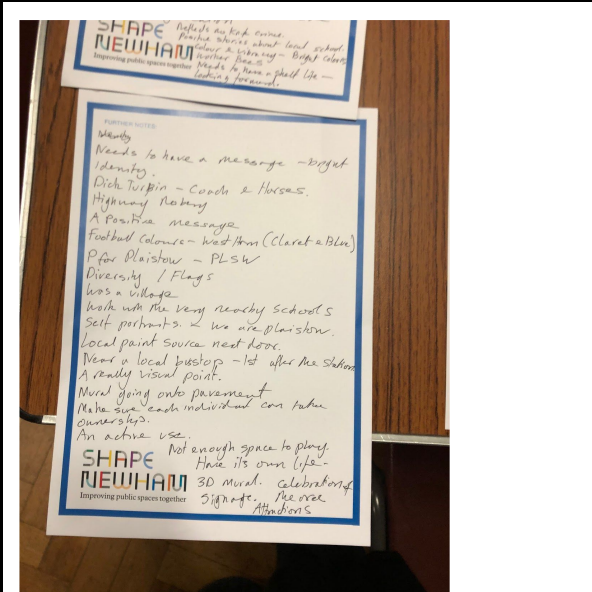 SHAPE
NEWHAM
Improving public spaces together
Reflects no knife crime.
Positive stories about local school.
Colour & vibrancy - Bright colours
Worker Bees
Needs to have a shelf life -
Looking forward.
FURTHER NOTES:
Identity
Needs to have a message - bright
Identity.
Dick Turpin - Coach & Horses.
Highway Robery
A Positive message
Football Colours - West Ham (Claret & Blue)
P for Plaistow - PLSW
Diversity / Flags
Was a village
Work with the very nearby schools
Self portraits. & We are Plaistow.
Local paint source next door.
Near a local bustop - 1st after the station
A really visual point.
Mural going onto pavement
Make sure each individual can take
ownership.
An active use.
Not enough space to play.
Have its own life -
3D mural. Celebration of
Signage. the
Attractions
SHAPE
NEWHAM
Improving public spaces together